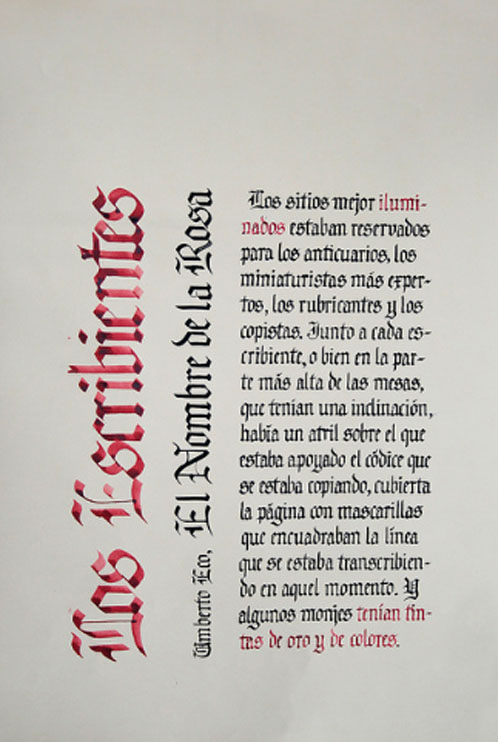 Los Escribientes
Umberto Eco, El Nombre de la Rosa
Los sitios mejor ilumi-
nados estaban reservados
para los anticuarios, los
miniaturistas más exper-
tos, los rubricantes y los
copistas. Junto a cada es-
cribiente, o bien en la par-
te más alta de las mesas,
que tenían una inclinación,
había un atril sobre el que
estaba apoyado el códice que
se estaba copiando, cubierta
la página con mascarillas
que encuadraban la línea
que se estaba transcribien-
do en aquel momento. Y
algunos monjes tenían tin-
tas de oro y de colores.